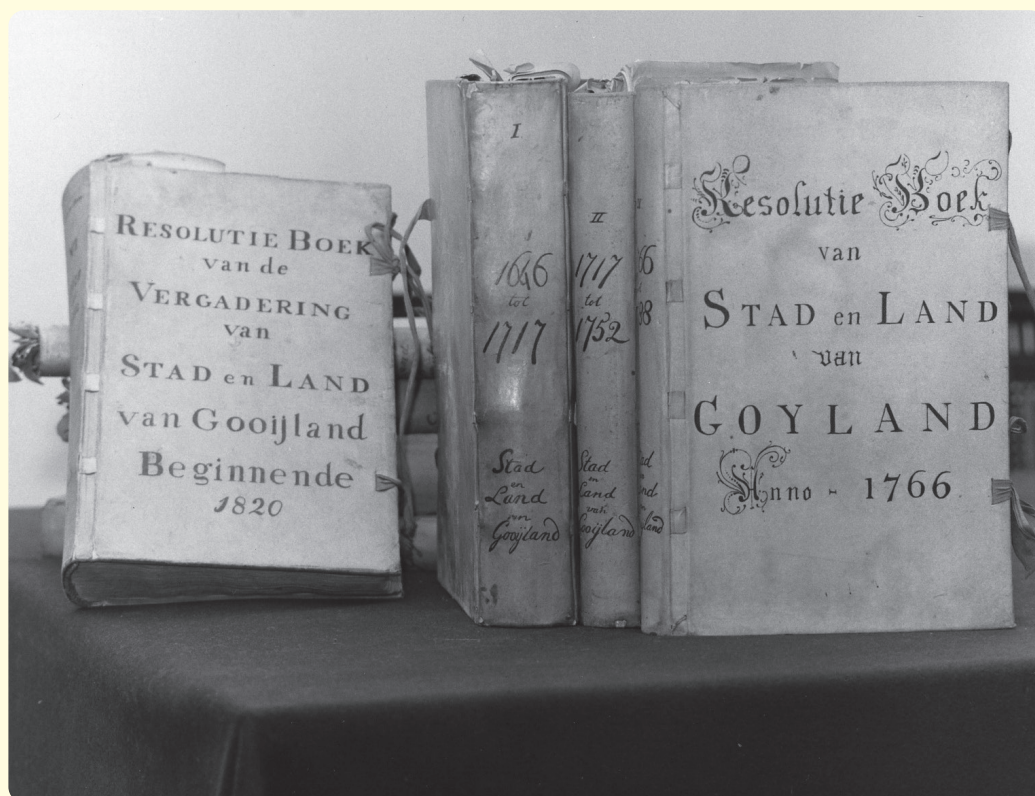 RESOLUTIE BOEK
van de
VERGADERING
van
STAD en LAND
van Gooijland
Beginnende
1820
I
1646
tot
1717
Stad
en
Land
van
Gooijland
II
1717
tot
1752
Stad
en
Land
van
Gooijland
Resolutie Boek
van
STAD en LAND
van
GOYLAND
Anno - 1766